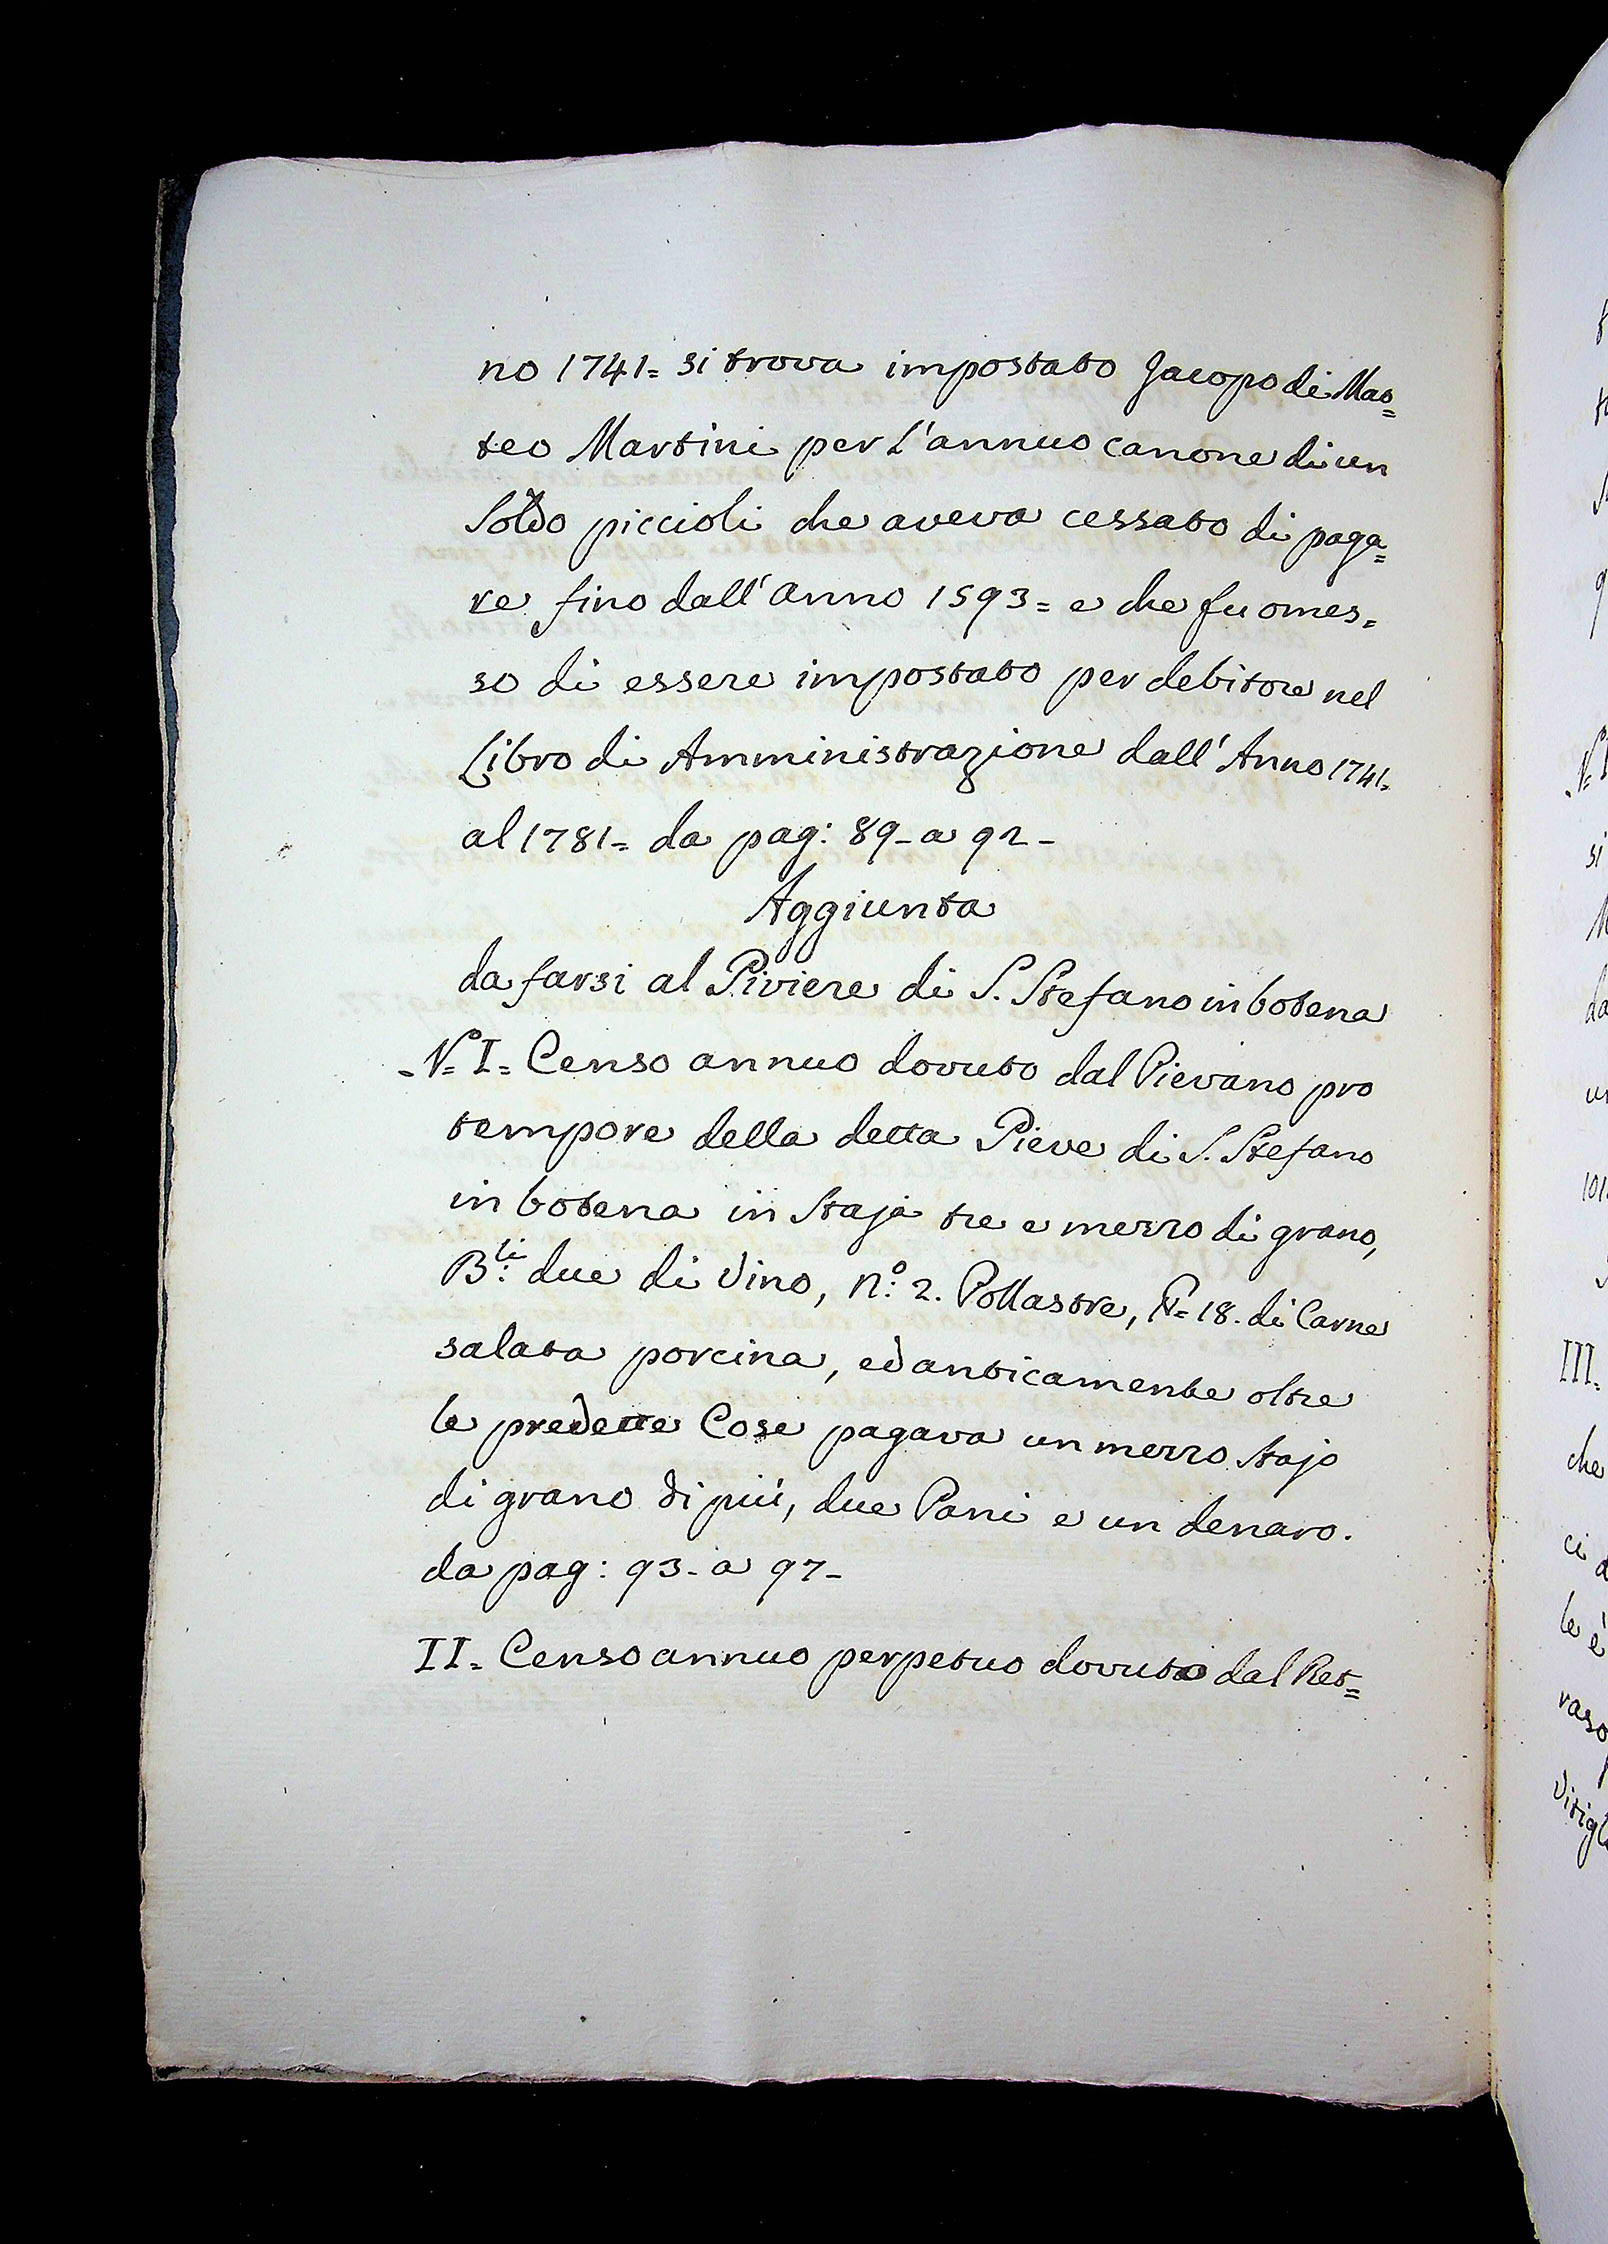 no 1741= si trova impostato Jacopo di Mat=
teo Martini per l'annuo canone di un
Soldo piccioli che aveva cessato di paga=
re fino dall'anno 1593= e che fu omes=
so di essere impostato per debitore nel
Libro di Amministrazione dall'Anno 1741=
al 1781= da pag: 89- a 92-
Aggiunta
da farsi al Piviere di S. Stefano in botena
-N.° I= Censo annuo dovuto dal Pievano pro
tempore della detta Pieve di S. Stefano
in botena in Staja tre e mezzo di grano,
B:li due di Vino, n.° 2. Pollastre, 18. di Carne
salata porcina, ed anticamente oltre
le predette Cose pagava un mezzo Stajo
di grano di più, due Pani e un denaro.
da pag: 93- a 97-
II= Censo annuo perpetuo dovuto dal Ret=
III=
che